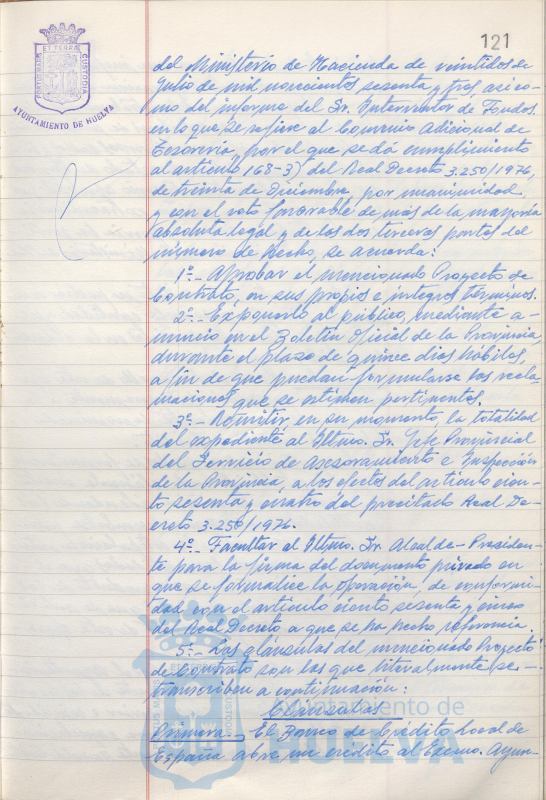 121
PORTUS MARIS ET TERRAE CUSTODIA
AYUNTAMIENTO DE HUELVA
del Ministerio de Hacienda de veintidos de
Julio de mil novecientos sesenta y tres, así co-
mo del informe del Sr. Interventor de Fondos,
en lo que se refiere al Convenio Adicional de
Tesorería, por el que se dá cumplimiento
al artículo 168-3) del Real Decreto 3.250/1976,
de treinta de Diciembre, por unanimidad,
y con el voto favorable de más de la mayoría
absoluta legal y de las dos terceras partes del
número de hecho, se acuerda:
1º.- Aprobar el mencionado Proyecto de
Contrato, en sus propios e íntegros términos.
2º.- Exponerlo al público, mediante a-
nuncio en el Boletín Oficial de la Provincia,
durante el plazo de quince días hábiles,
a fin de que puedan formularse las recla-
maciones que se estimen pertinentes.
3º.- Remitir, en su momento, la totalidad
del expediente al Iltmo. Sr. Jefe Provincial
del Servicio de Asesoramiento e Inspección
de la Provincia, a los efectos del artículo cien-
to sesenta y cuatro del precitado Real De-
creto 3.250/1976.
4º.- Facultar al Iltmo. Sr. Alcalde-Presiden-
te para la firma del documento privado en
que se formalice la operación, de conformi-
dad con el artículo ciento sesenta y cinco
del Real Decreto a que se ha hecho referencia.
5º.- Las cláusulas del mencionado Proyecto
de Contrato son las que literalmente se
transcriben a continuación:
Clausulas
Primera.- El Banco de Crédito Local de
España abre un crédito al Excmo. Ayun-
Ayuntamiento de
HUELVA